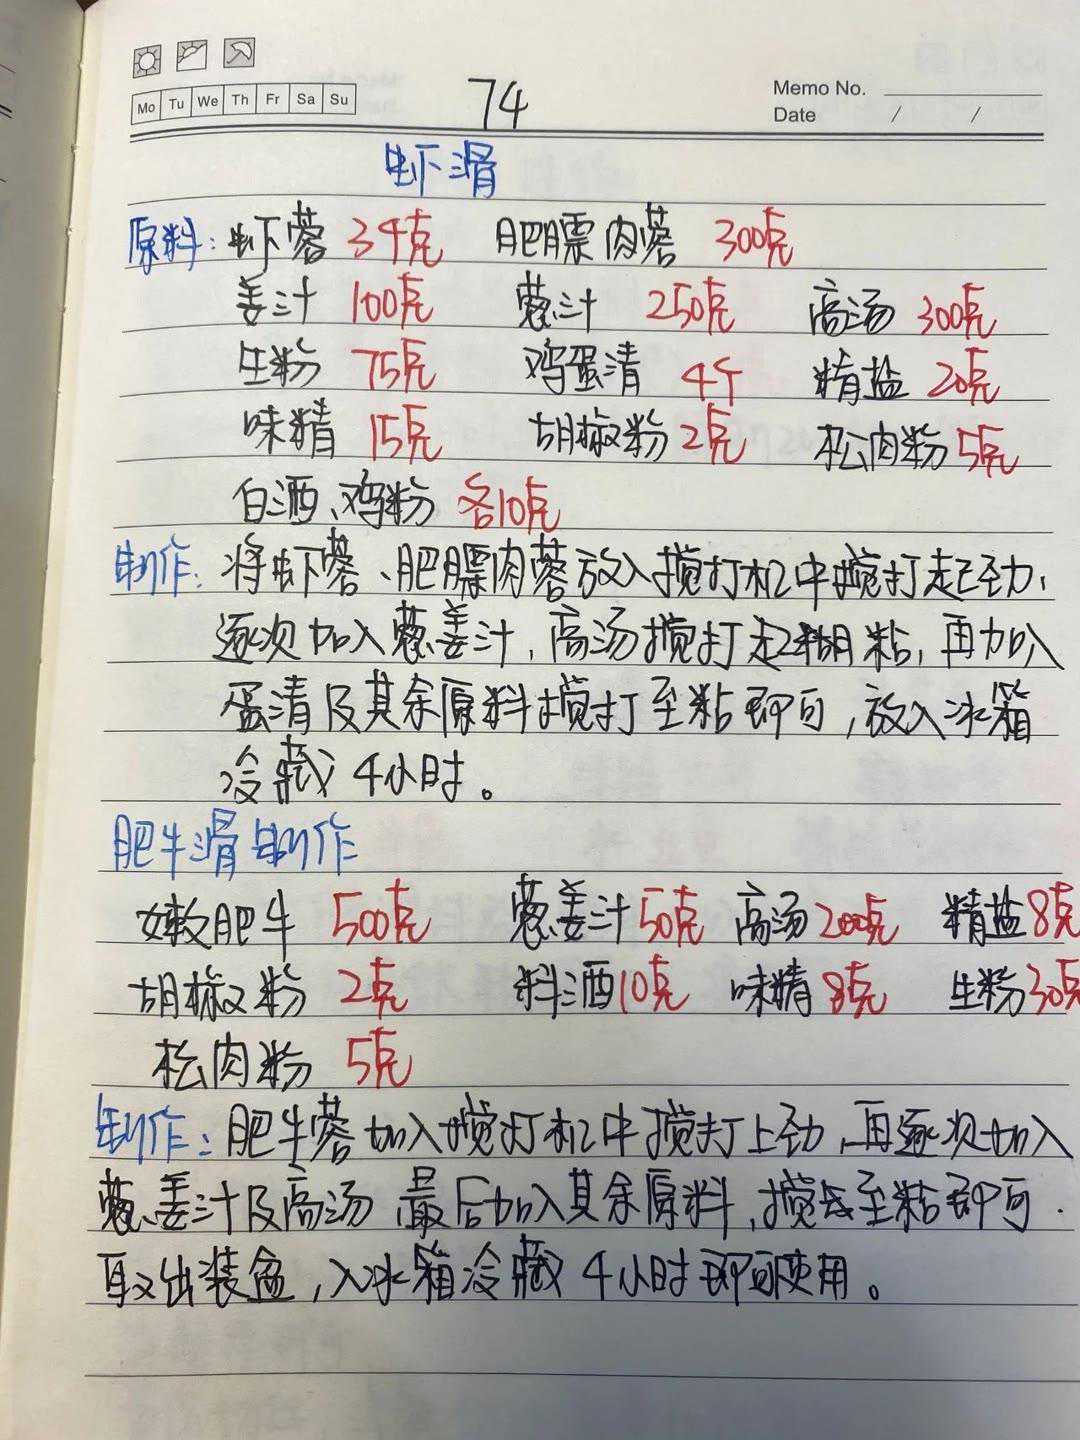 Mo Tu We Th Fr Sa Su
74
Memo No.
Date / /
虾滑
原料: 虾蓉 34克 肥膘肉蓉 300克
姜汁 100克 葱汁 250克 高汤 300克
生粉 75克 鸡蛋清 4个 精盐 20克
味精 15克 胡椒粉 2克 松肉粉 5克
白酒、鸡粉 各10克
制作: 将虾蓉、肥膘肉蓉放入搅打机中搅打起劲,
逐次加入葱姜汁,高汤搅打起糊粘,再加入
蛋清及其余原料搅打至粘即可,放入冰箱
冷藏4小时。
肥牛滑制作
嫩肥牛 500克 葱姜汁50克 高汤200克 精盐8克
胡椒粉 2克 料酒10克 味精8克 生粉30克
松肉粉 5克
制作: 肥牛蓉加入搅打机中搅打上劲,再逐次加入
葱姜汁及高汤 最后加入其余原料,搅至粘即可.
取出装盒,入冰箱冷藏4小时即可使用。